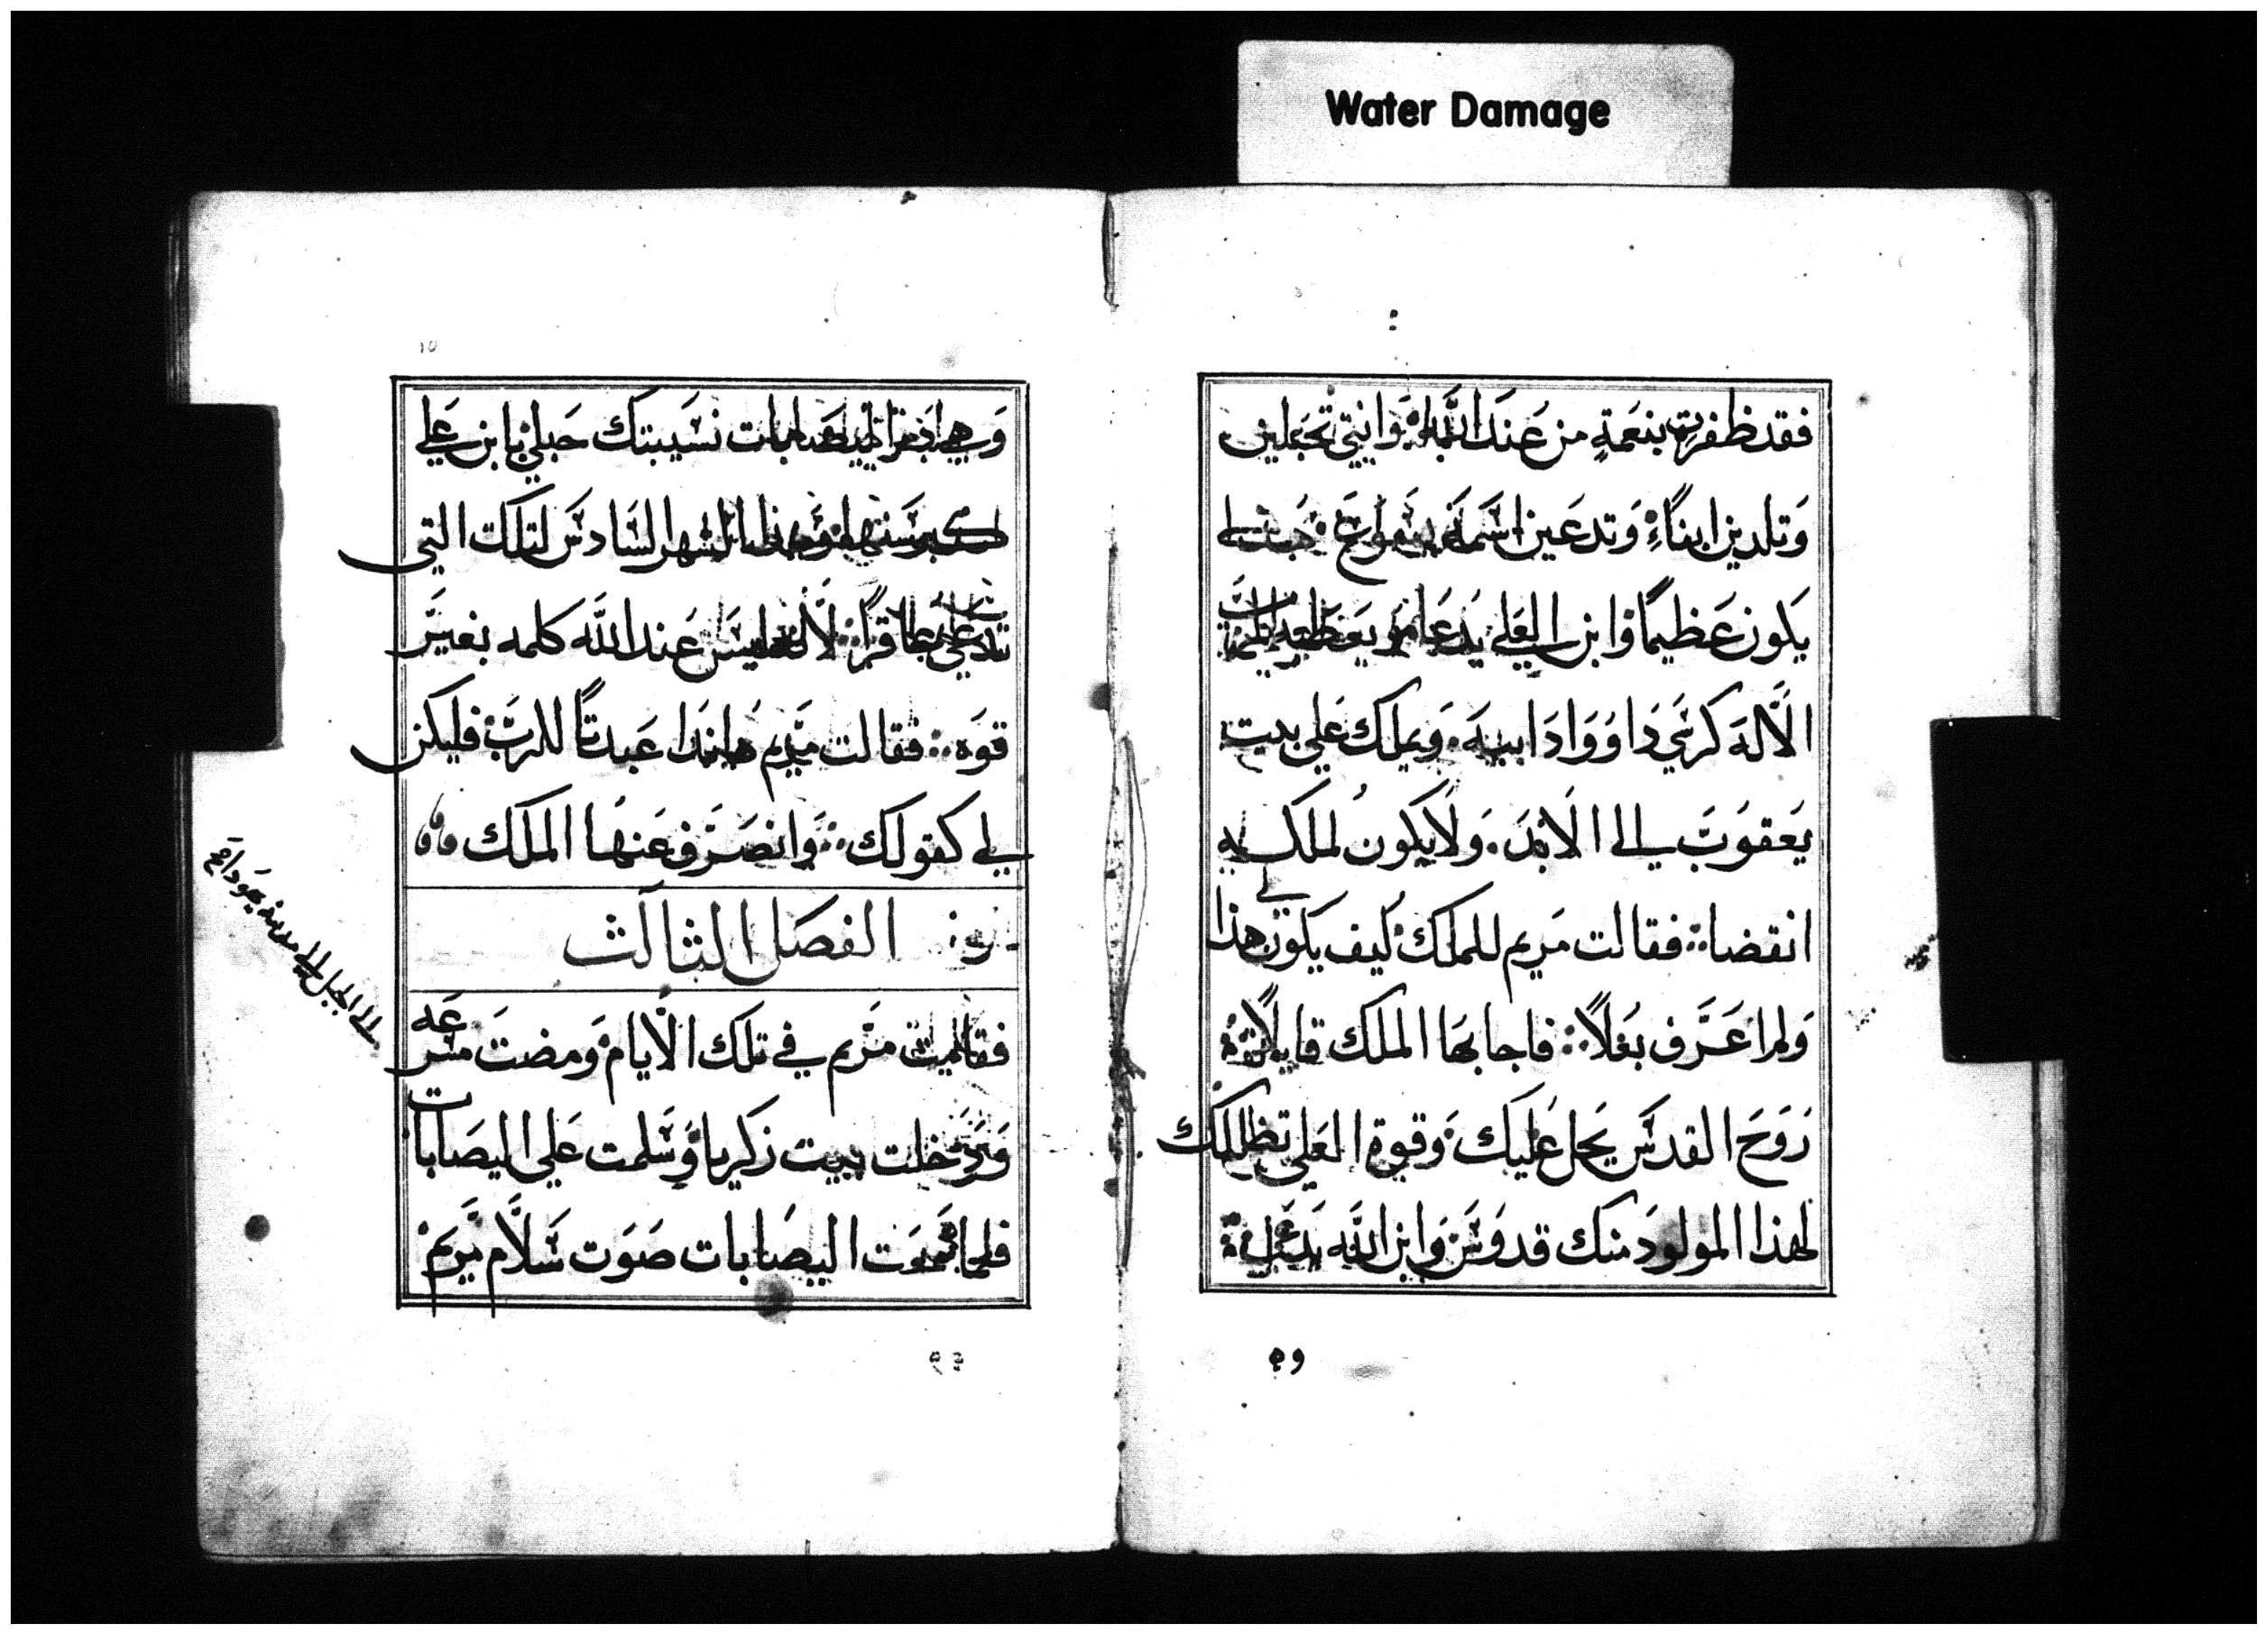 Water Damage
فقد ظفرتي بنعمةٍ من عند الله وانتي تحبلين
وتلدين ابناً وتدعين اسمه يسوع هذا
يكون عظيمًا وابن العلي يدعا ويعطيه الرب
الاله كرسي داوود ابيه ويملك على بيت
يعقوب الى الابد ولا يكون لملكه
انقضا فقالت مريم للملك كيف يكون لي هذا
ولم اعرف بعلًا فاجابها الملك قايلًا
روح القدس يحل عليك وقوة العلي تظللك
لهذا المولود منك قدوس وابن الله يدعى
اليصابات نسيبتك حبلي بابن على
كبر سنها وهذا الشهر السادس لتلك التي
تدعى عاقرًا لانه ليس عند الله كلمه بغير
قوه فقالت مريم هانذا عبدتًا للرب فليكن
لي كقولك وانصرف عنها الملك
الفصل الثالث
فقامت مريم في تلك الايام ومضت مسرعه
الى الجبل الى مدينة يهودا
ودخلت بيت زكريا وسلمت على اليصابات
فلما سمعت اليصابات صوت سلام مريم